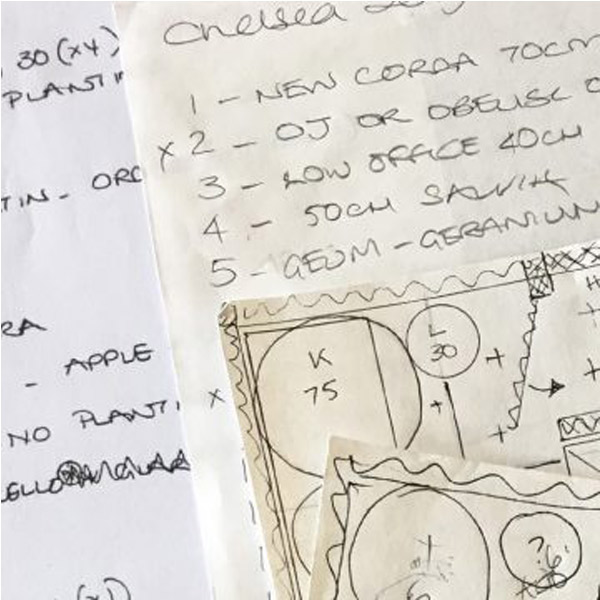 30 (x4)
PLANTI
TIN - ORC
RA
- APPLE
NO PLANTI
ELLO
(x1)
Chelsea
1 - NEW CORDA 70CM
x 2 - OJ OR OBELISC O
3 - LOW OFFICE 40CM
4 - 50CM SALVIA
5 - GEUM - GERANIUM
x
K
75
L
30
H
?
6